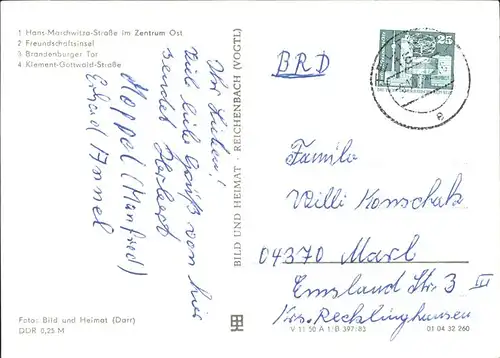 1 Hans-Marchwitza-Straße im Zentrum Ost
2 Freundschaftsinsel
3 Brandenburger Tor
4 Klement-Gottwald-Straße
Ihr Lieben!
Viele liebe Grüße von hier
sendet Herbert
Moppel (Manfred)
Erhard
Foto: Bild und Heimat (Darr)
DDR 0,25 M
BILD UND HEIMAT · REICHENBACH (VOGTL)
BRD
25
e
Familie
Willi Konschak
04370 Marl
Emsland Str. 3 III
Krs. Recklinghausen
V 11 50 A 1/B 397/83
01 04 32 260